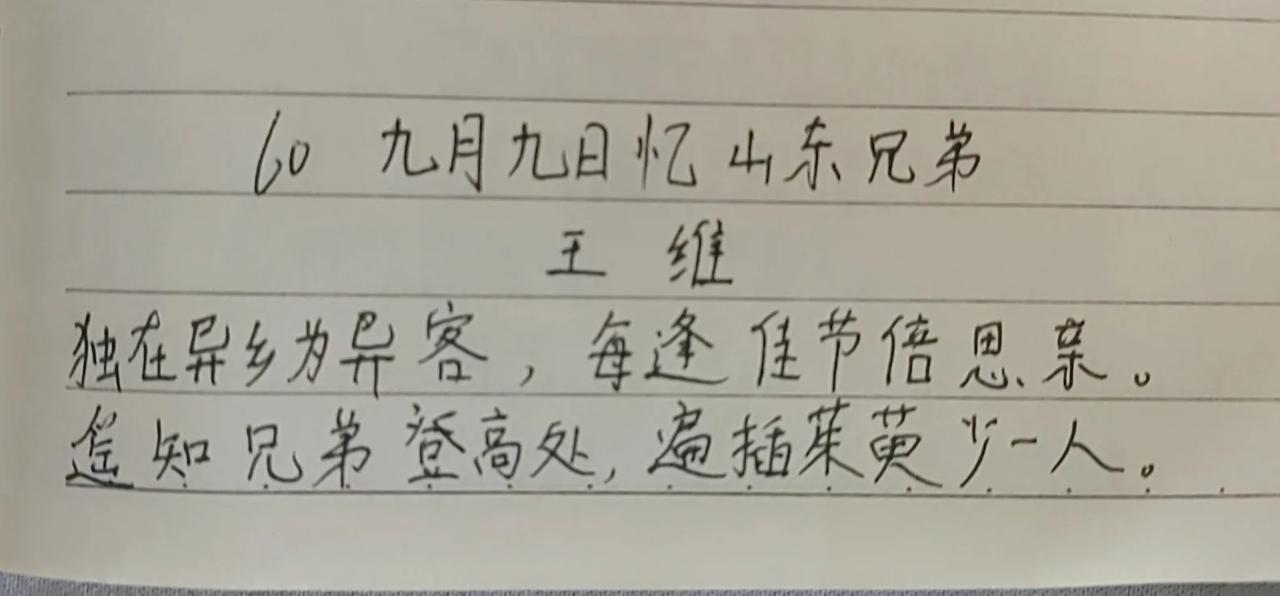 60 九月九日忆山东兄弟
王维
独在异乡为异客，每逢佳节倍思亲。
遥知兄弟登高处，遍插茱萸少一人。